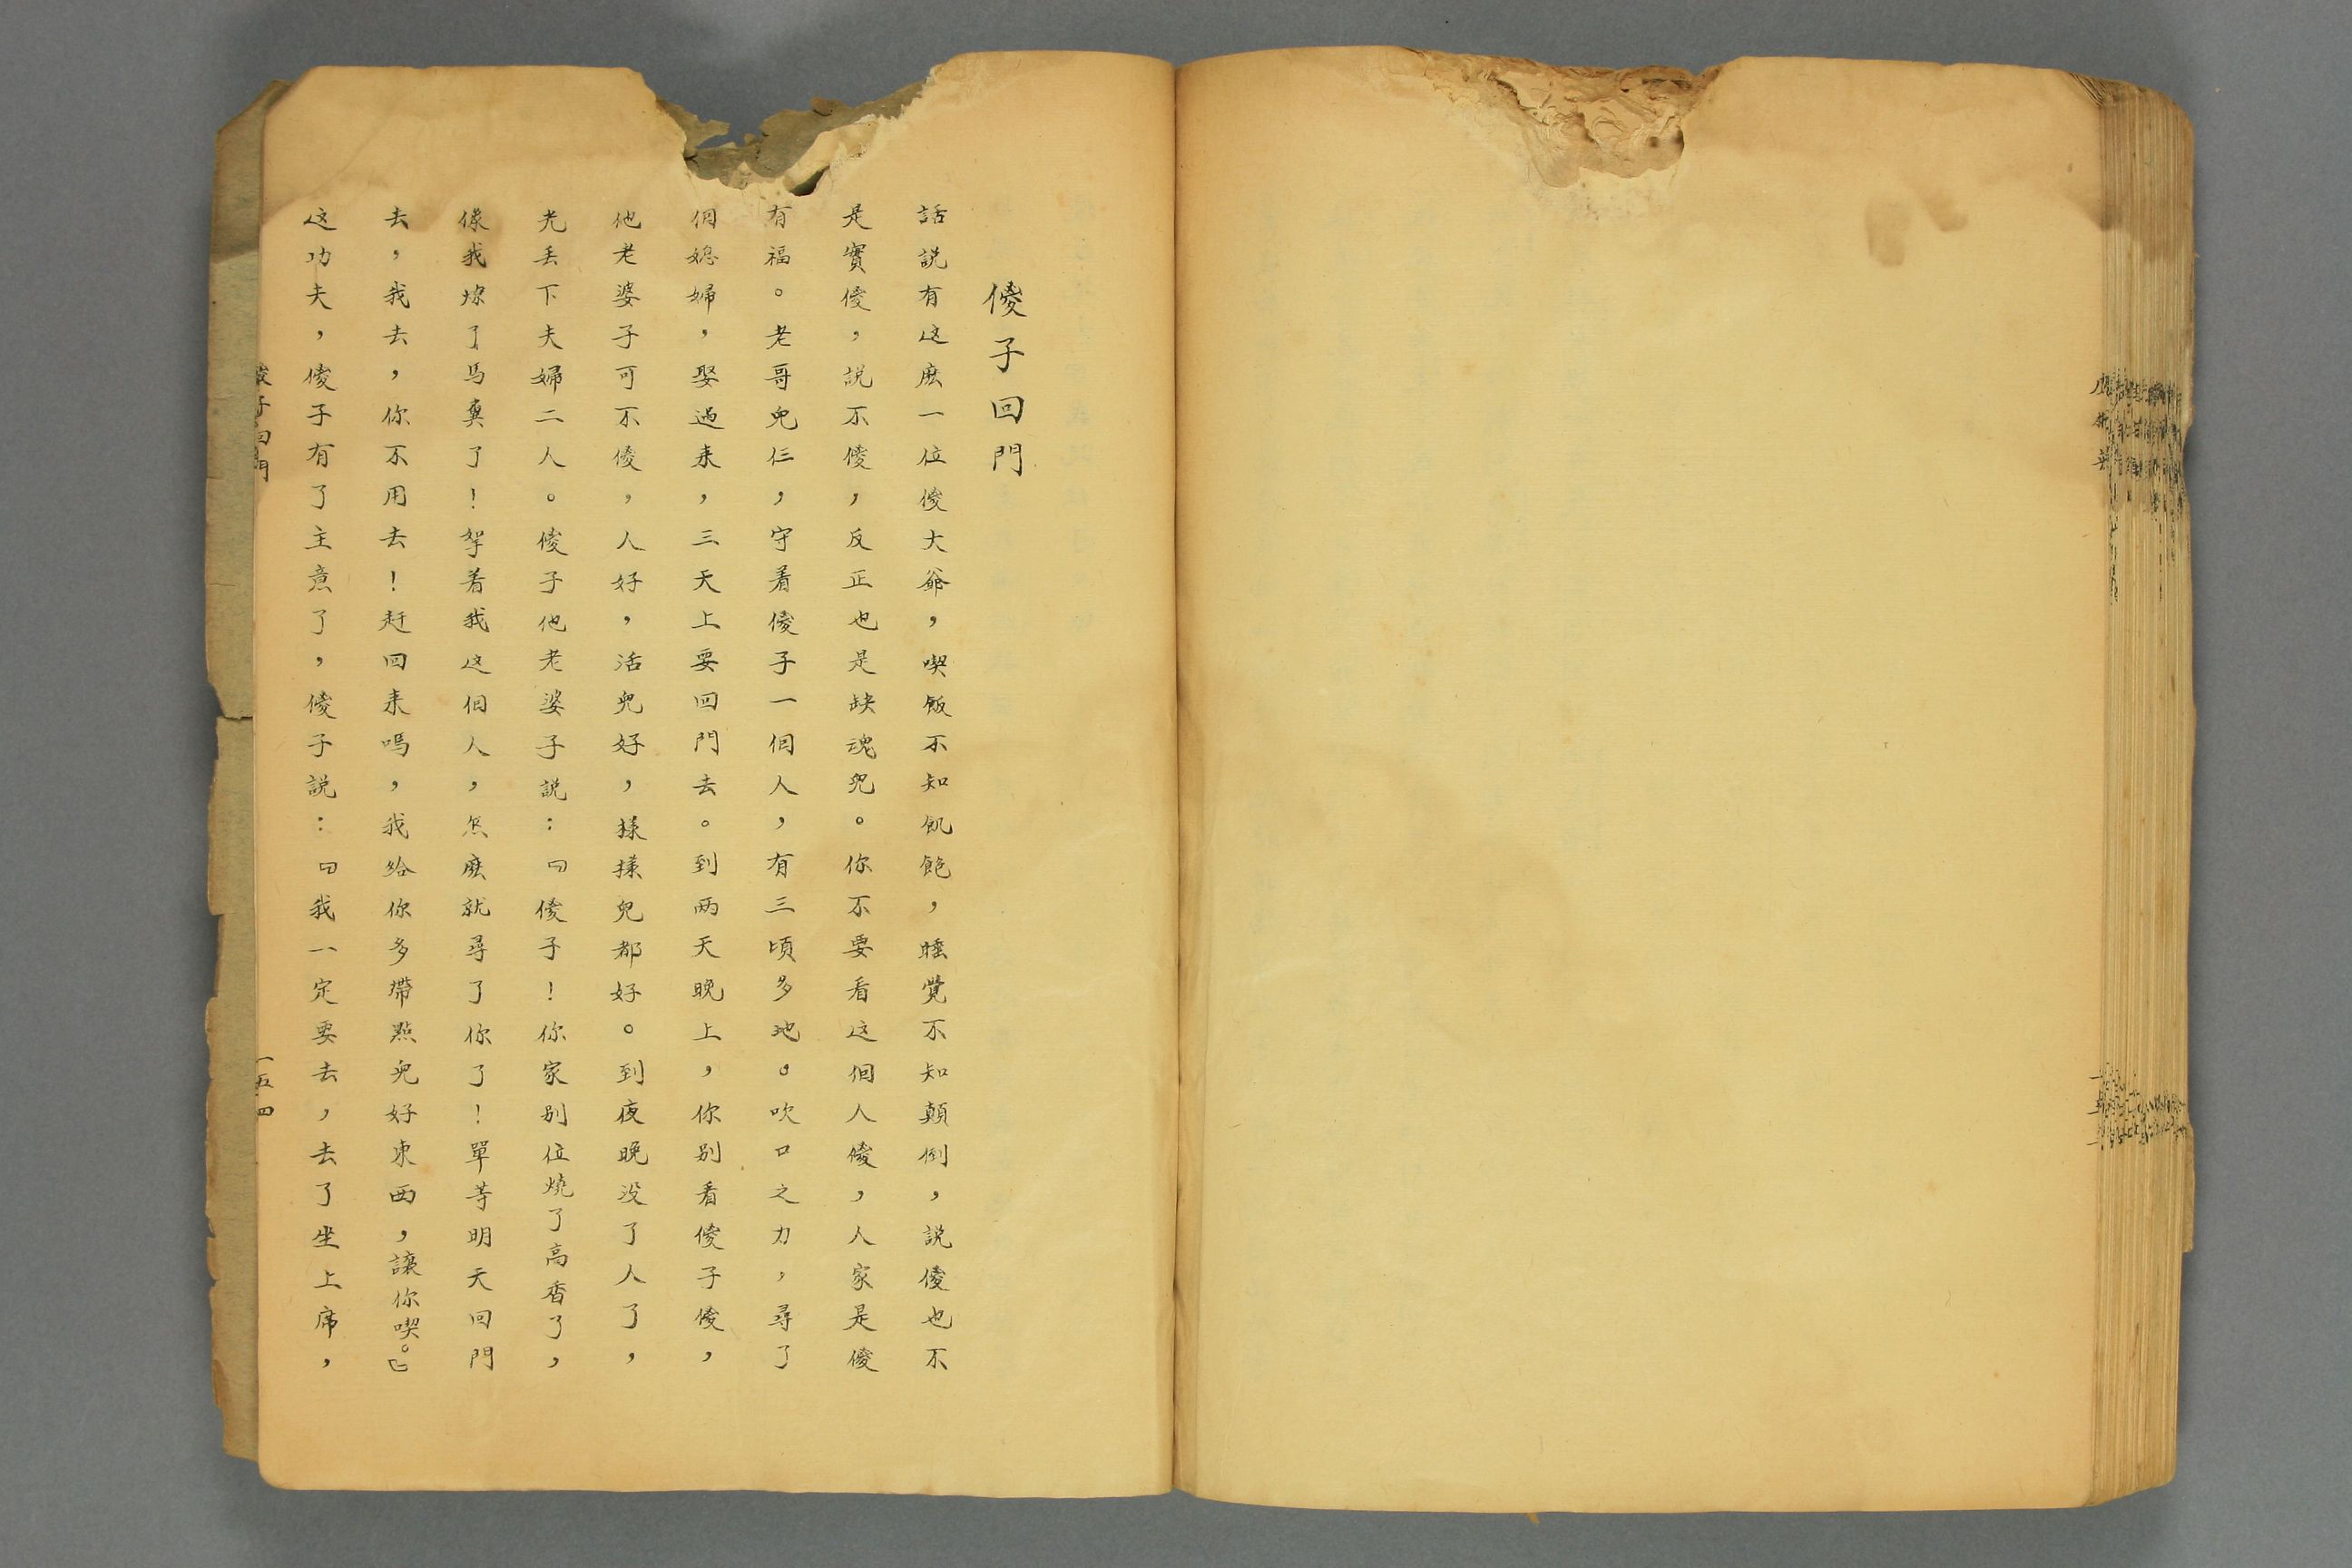 傻子回門
話説有这麽一位傻大爺，喫飯不知飢飽，睡覺不知顛倒，説傻也不
是實傻，説不傻，反正也是缺魂兒。你不要看这個人傻，人家是傻
有福。老哥兒仨，守着傻子一個人，有三頃多地。吹口之力，尋了
個媳婦，娶過来，三天上要回門去。到两天晚上，你别看傻子傻，
他老婆子可不傻，人好，活兒好，樣樣兒都好。到夜晚没了人了，
光丢下夫婦二人。傻子他老婆子説：「傻子！你家别位燒了高香了，
像我燎了馬糞了！拏着我这個人，怎麽就尋了你了！單等明天回門
去，我去，你不用去！赶回来嗎，我給你多帶點兒好東西，讓你喫。」
这功夫，傻子有了主意了，傻子説：「我一定要去，去了坐上席，
傻子回門
一五四